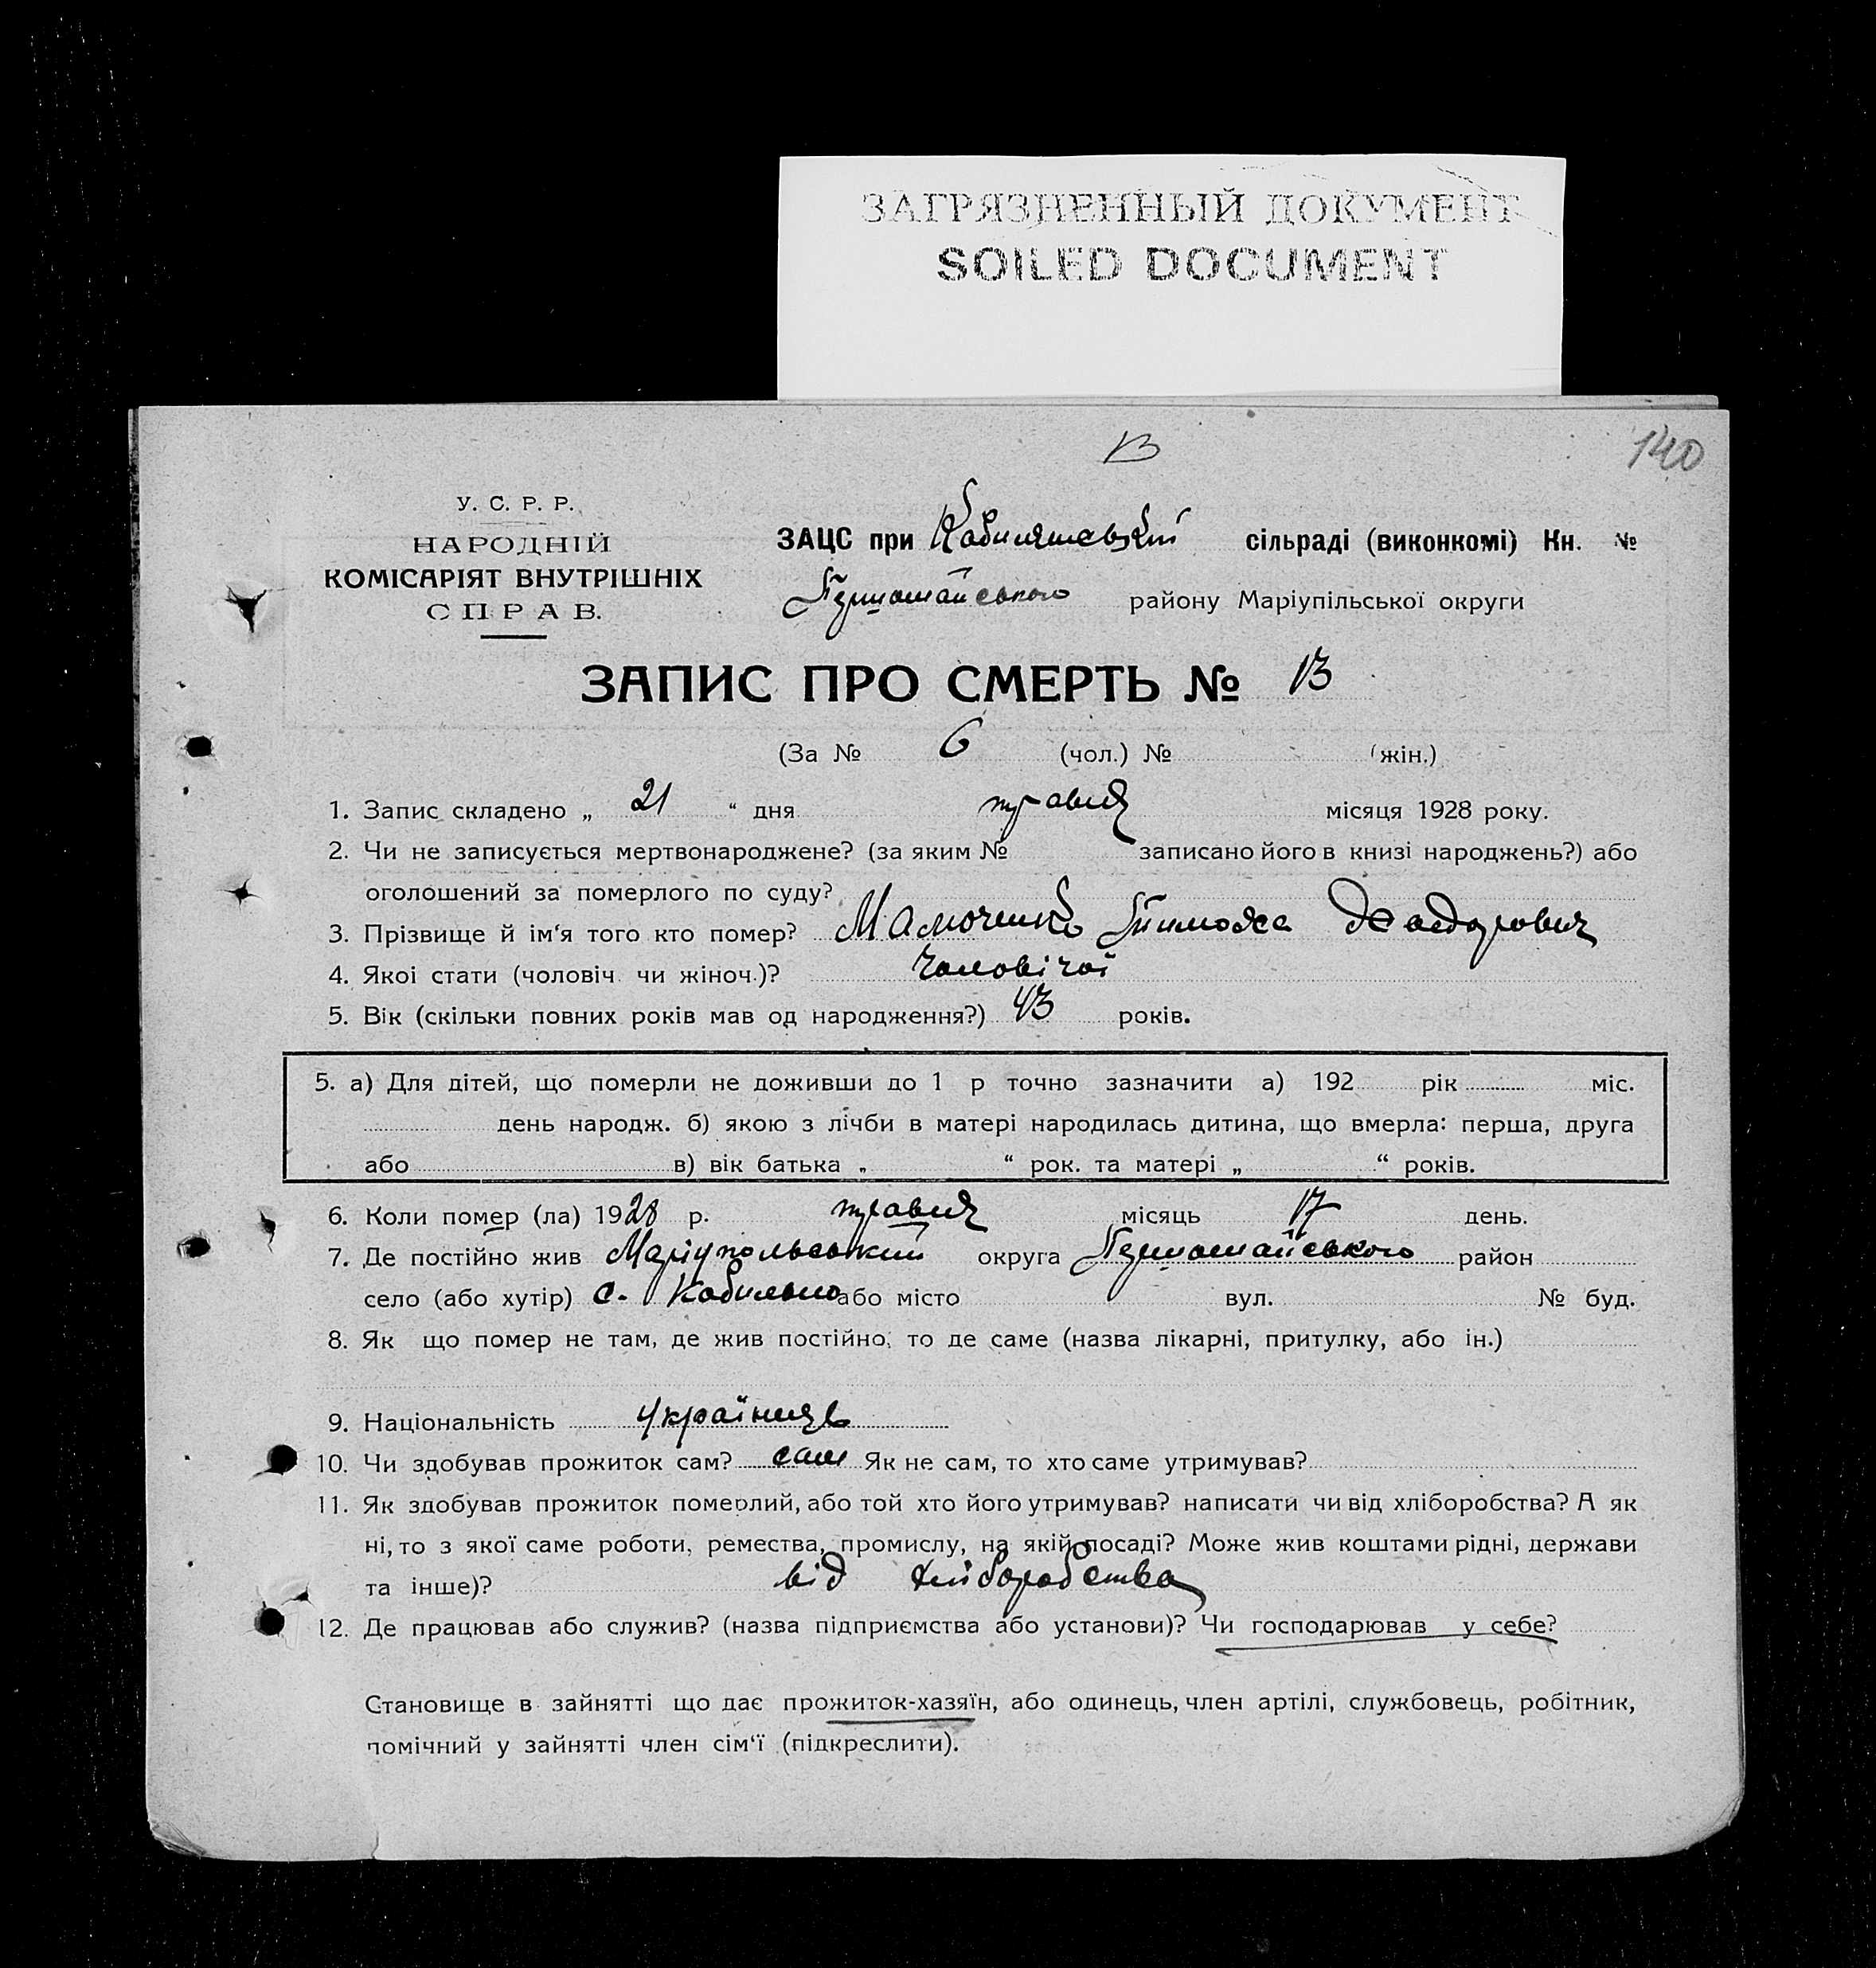 ЗАГРЯЗНЕННЫЙ ДОКУМЕНТ
SOILED DOCUMENT
13
140
У. С. Р. Р.
НАРОДНІЙ
КОМІСАРІЯТ ВНУТРІШНІХ
СПРАВ.
ЗАЦС при сільраді (виконкомі) Кн. №
Першомайського району Маріупільської округи
ЗАПИС ПРО СМЕРТЬ № 13
(За № 6 (чол.) № (жін.)
1. Запис складено „ 21 “ дня травня місяця 1928 року.
2. Чи не записується мертвонароджене? (за яким № записано його в книзі народжень?) або
оголошений за померлого по суду?
3. Прізвище й ім‘я того кто помер? Тимофе
4. Якоі стати (чоловіч. чи жіноч.)? чоловічої
5. Вік (скільки повних років мав од народження?) 43 років.
5. а) Для дітей, що померли не доживши до 1 р точно зазначити а) 192 рік міс.
день народж. б) якою з лічби в матері народилась дитина, що вмерла: перша, друга
або в) вік батька „ “ рок. та матері „ “ років.
6. Коли помер (ла) 1928 р. травня місяць 17 день.
7. Де постійно жив Маріупольський округа Першомайського район
село (або хутір) с. Кобильно або місто вул. № буд.
8. Як що помер не там, де жив постійно, то де саме (назва лікарні, притулку, або ін.)
9. Національність Українець
10. Чи здобував прожиток сам? сам Як не сам, то хто саме утримував?
11. Як здобував прожиток померлий, або той хто його утримував? написати чи від хліборобства? А як
ні, то з якої саме роботи, ремества, промислу, на якій посаді? Може жив коштами рідні, держави
та інше)? від хліборобства
12. Де працював або служив? (назва підприємства або установи)? Чи господарював у себе?
Становище в зайнятті що дає прожиток-хазяїн, або одинець, член артілі, службовець, робітник,
помічний у зайнятті член сім‘ї (підкреслити).